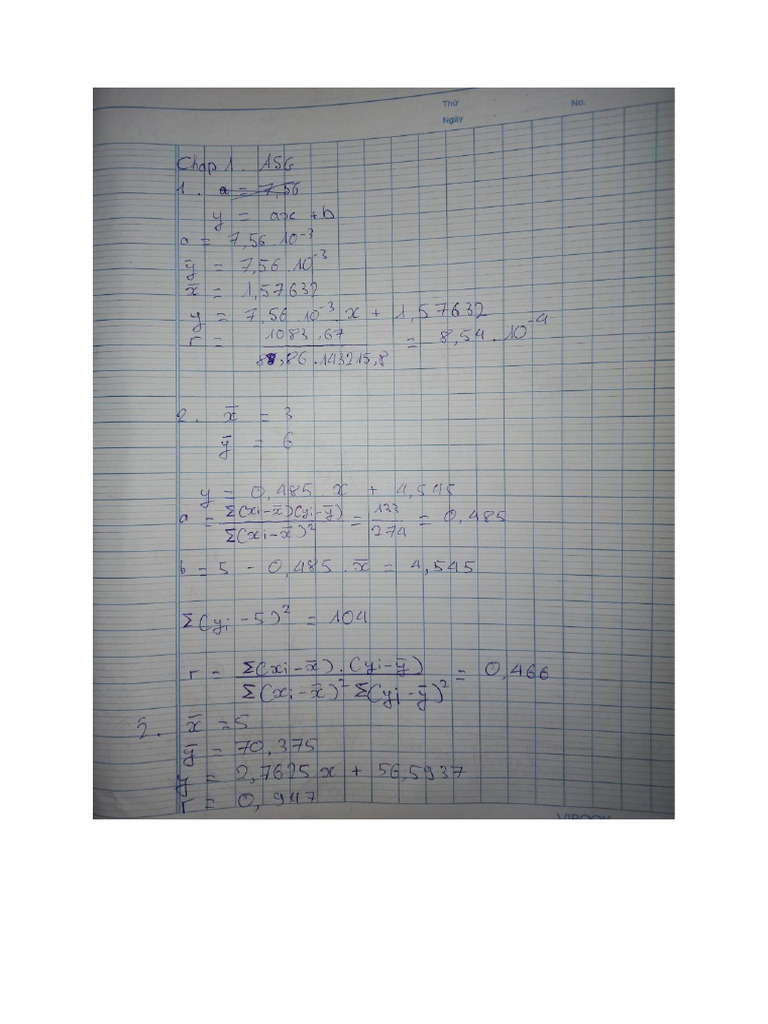 Thứ No.
Ngày
Chap 1. ASG
1. a = 7,56
y = ax + b
a = 7,56.10⁻³
ȳ = 7,56.10⁻³
x̄ = 1,57632
y = 7,56.10⁻³.x + 1,57632
r = 1083.67 / 88,86.143215,8 = 8,54.10⁻⁴
2. x̄ = 3
ȳ = 6
y = 0,485.x + 4,545
a = Σ(xi-x̄)(yi-ȳ) / Σ(xi-x̄)² = 133 / 274 = 0,485
b = 5 - 0,485.x̄ = 4,545
Σ(yi - 5)² = 104
r = Σ(xi-x̄).(yi-ȳ) / Σ(xi-x̄)² Σ(yi-ȳ)² = 0,466
5. x̄ = 5
ȳ = 70,375
y = 2,7625x + 56,5937
r = 0,947